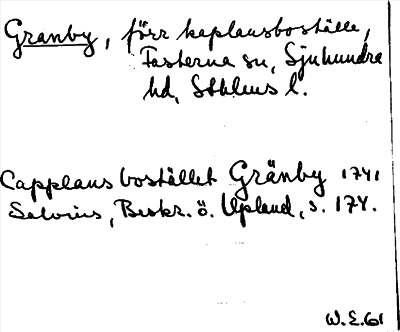 Granby, förr kaplansboställe,
Fasterna sn, Sjuhundra
hd, Sthlms l.
Capplans bostället Gränby 1741
Salvius, Beskr. ö. Upland, s. 174.
W.E.61